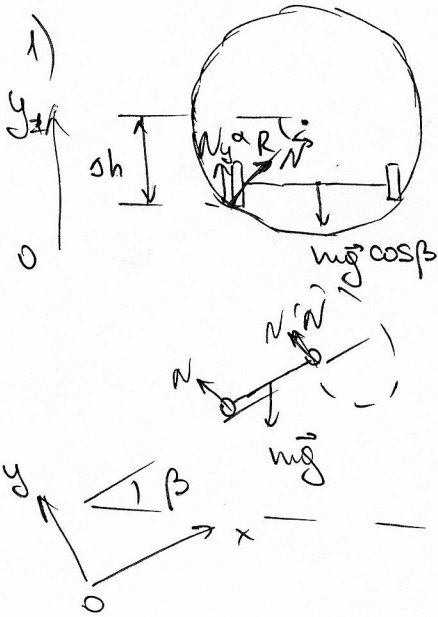 1)
y
Δh
Ny α R
N
0
mg⃗ cosβ
N' N
N
mg⃗
y
β
x
0